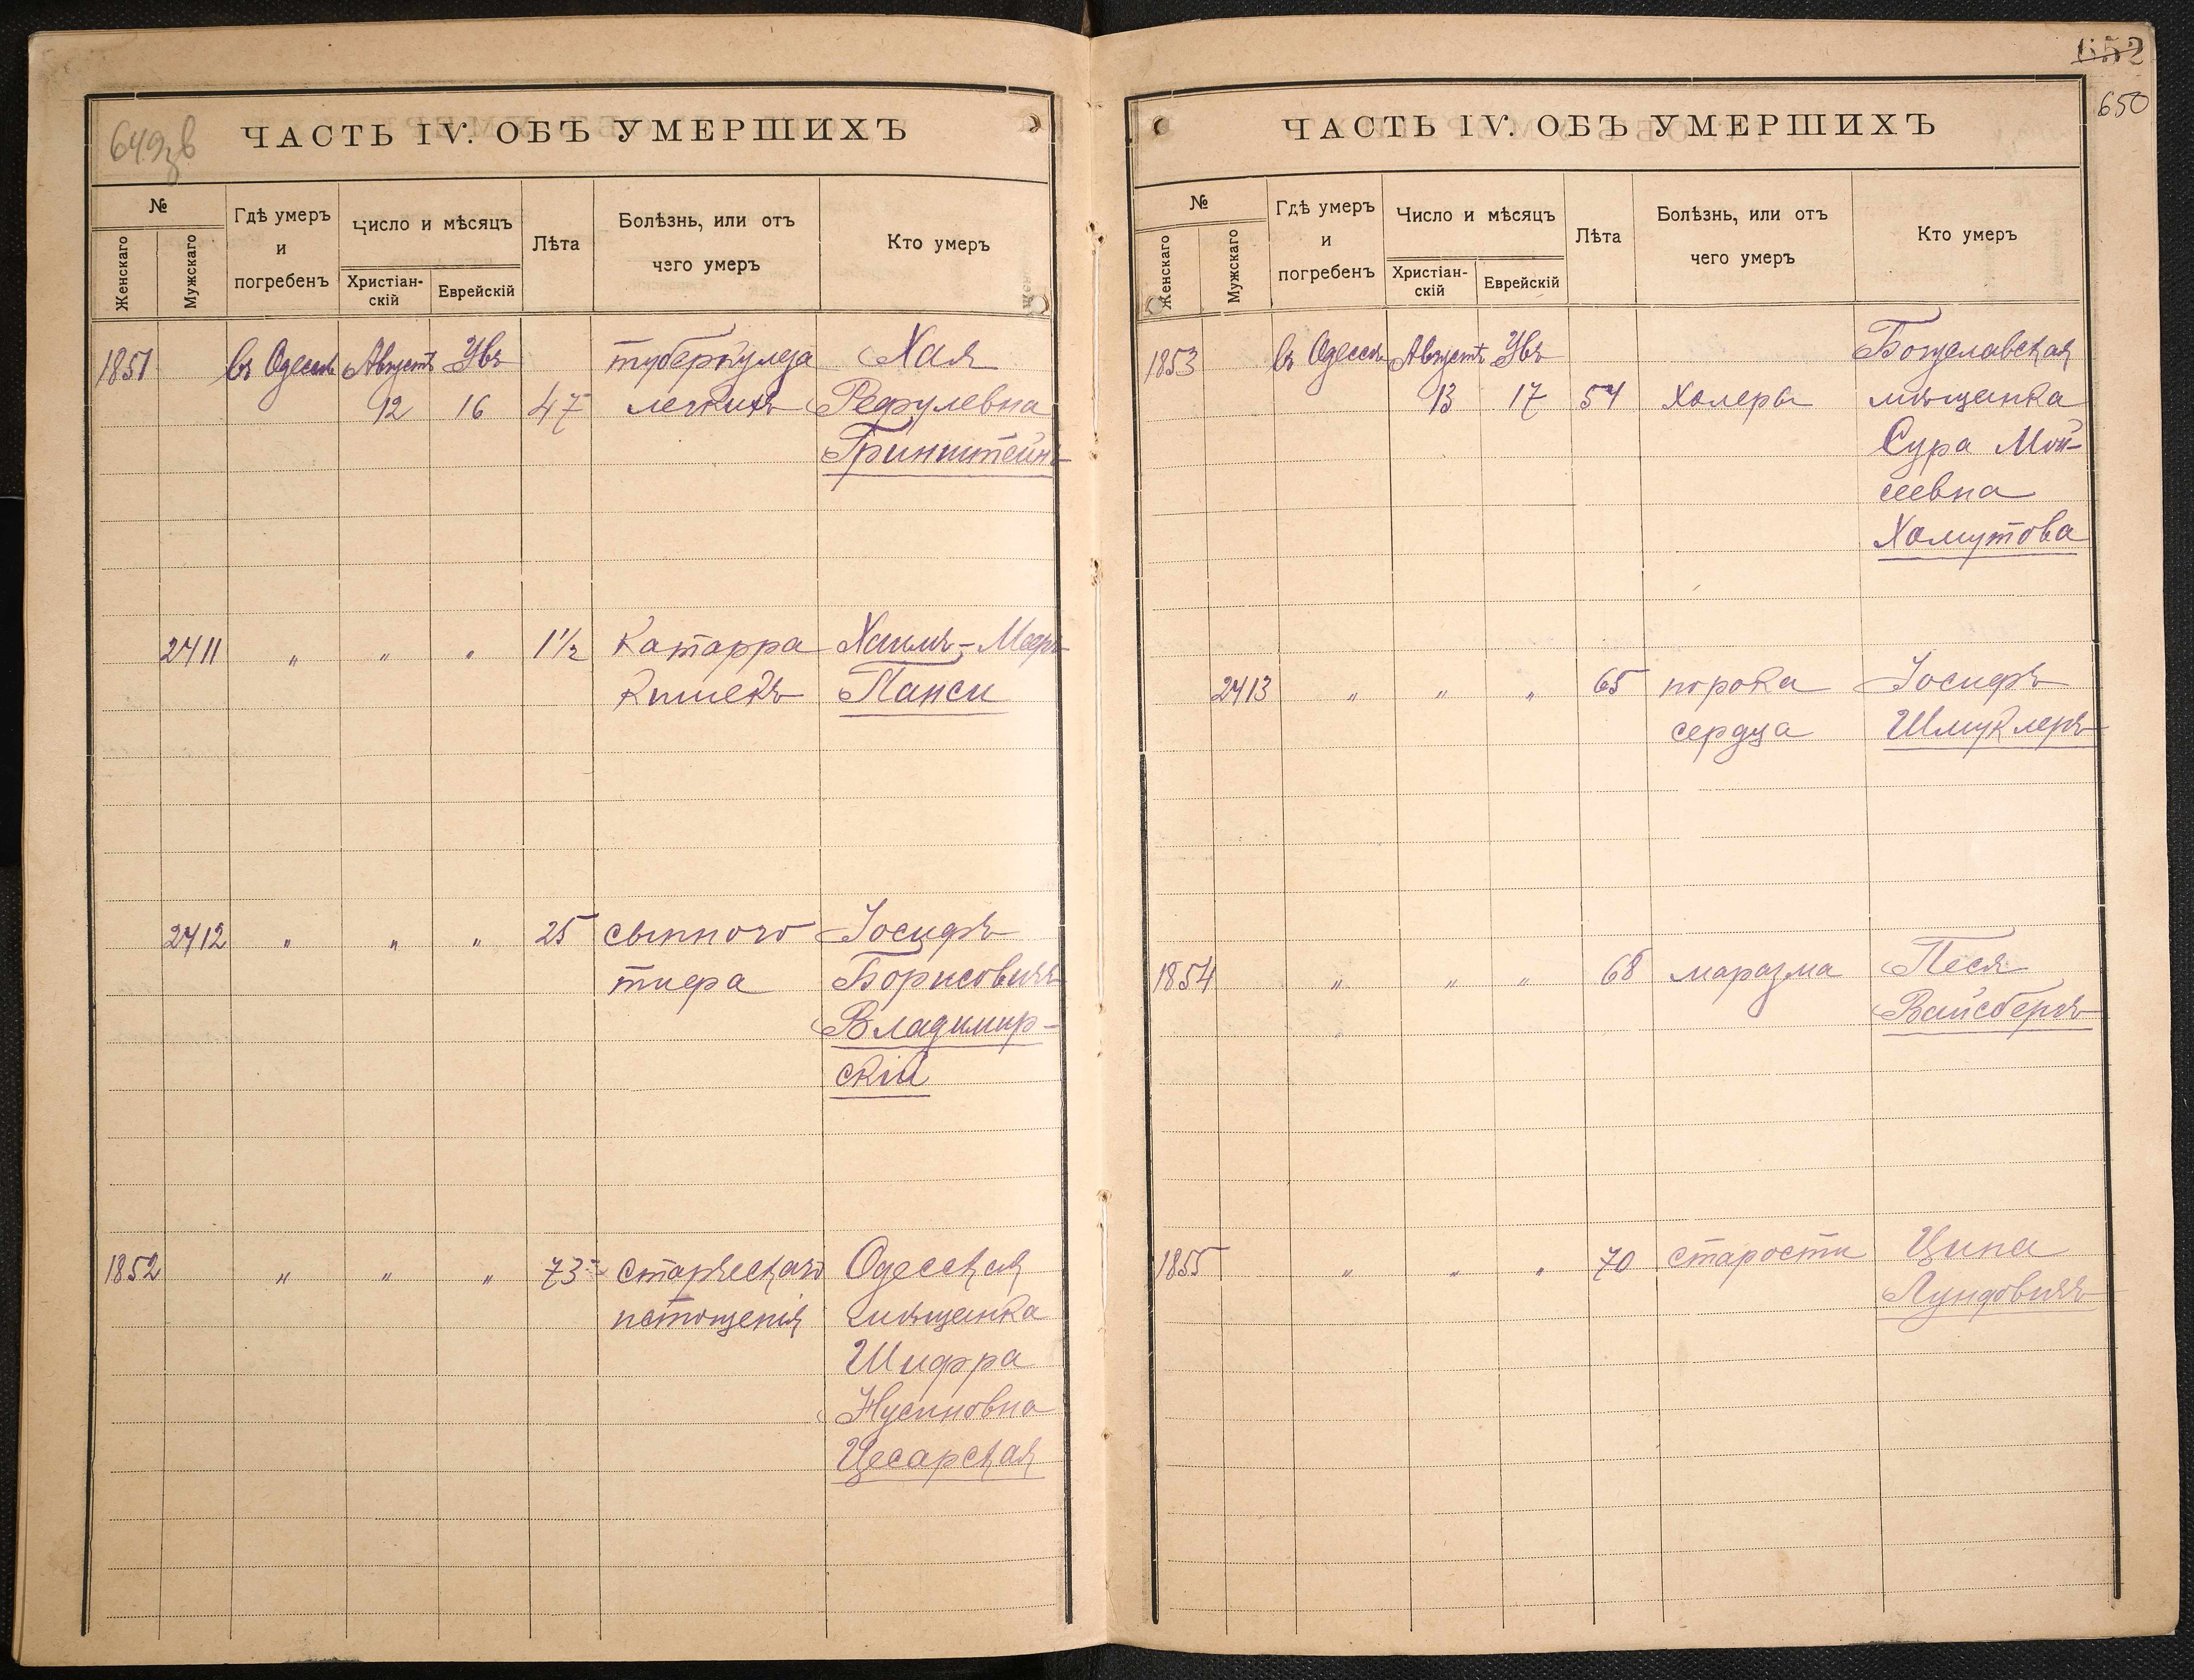 649зв
ЧАСТЬ IV. ОБЪ УМЕРШИХЪ
№
Женскаго
Мужскаго
Гдѣ умеръ
и
погребенъ
Число и мѣсяцъ
Христіан-
скій
Еврейскій
Лѣта
Болѣзнь, или отъ
чего умеръ
Кто умеръ
1851 въ Одессѣ Августъ Увъ туберкулеза Хая
12 16 47 легкихъ Рефулевна
Гринштейнъ
2411 " " " 1 1/2 Катарра Хаимъ-Мееръ
кишекъ Панси
2412 " " " 25 сыпного Іосифъ
тифа Борисовичъ
Владимир-
скій
1852 " " " 73 старческаго Одесская
истощенія мѣщанка
Шифра
Нусиновна
Цесарская
652
650
ЧАСТЬ IV. ОБЪ УМЕРШИХЪ
№
Женскаго
Мужскаго
Гдѣ умеръ
и
погребенъ
Число и мѣсяцъ
Христіан-
скій
Еврейскій
Лѣта
Болѣзнь, или отъ
чего умеръ
Кто умеръ
1853 въ Одессѣ Августъ Увъ
13 17 54 холеры мѣщанка
Сура Мой-
сеевна
Хомутова
2413 " " " 65 порока Іосифъ
сердца Шмуклеръ
1854 " " " 68 маразма Песя
Вайсбергъ
1855 " " " 70 старости Ципа
Лундовичъ